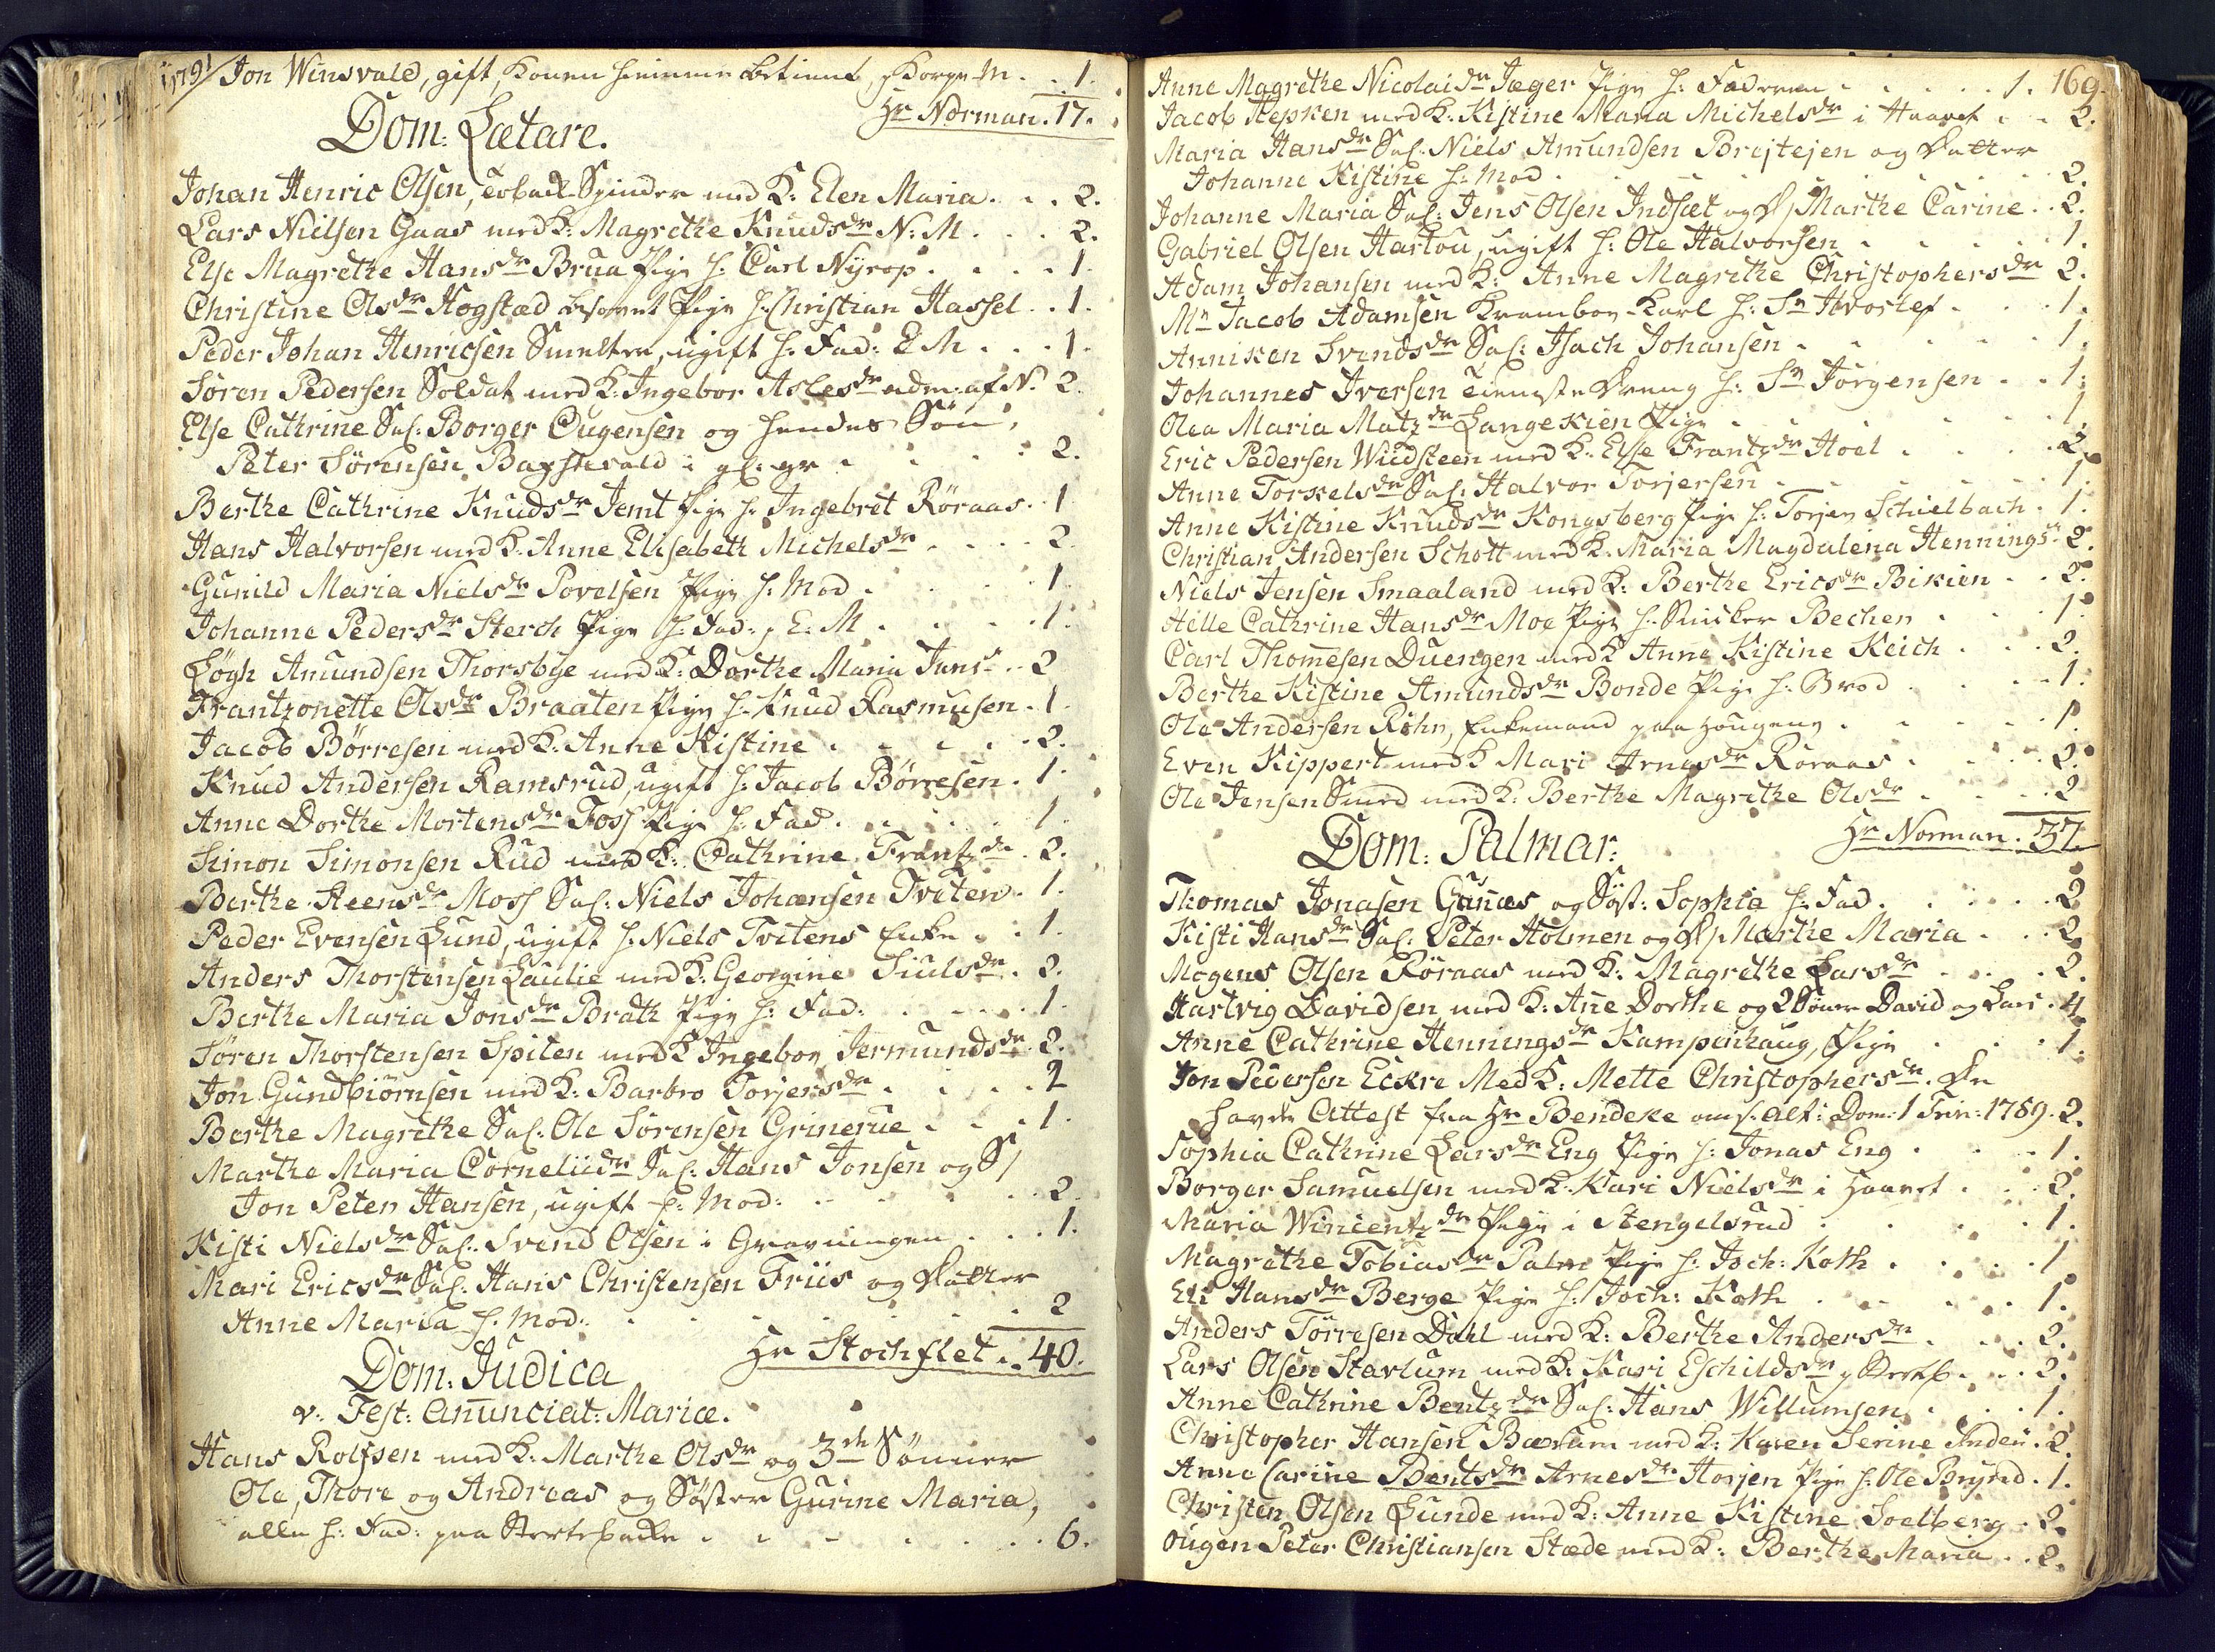 1791 Jon Winsvald, gift, Konen hiemme betient, Korge M. . 1.
Hr Norman. 17.
Dom: Lætare.
Johan Henric Olsen, Tobac Spinder med K: Elen Maria. . . 2.
Lars Nielsen Gaas med K: Magrethe Knudsdr N: M . . . 2.
Else Magrethe Hansdr Brua Pige h: Carl Nyrop . . . . 1.
Christine Olsdr Hogstad besovet Pige h: Christian Hassel . . 1.
Peder Johan Henricsen Smelter, ugift h: Fad: E M . . . 1.
Søren Pedersen Soldat med K: Ingebor Aslesdr adm: af N. 2.
Else Cathrine Sal: Borger Ougensen og hendes Søn,
Peter Sørensen Bagstevold i gl: gr . . . . 2.
Berthe Cathrine Knudsdr Jemt Pige h: Ingebret Röraas . . 1
Hans Halvorsen med K. Anne Elisabeth Michelsdr . . . . 2.
Gunild Maria Nielsdr Povelsen Pige h: Mod . . . . 1
Johanne Pedersdr Sterch Pige h: Fad:, E: M . . . . 1.
Løgh Amundsen Thorsbye med K: Dorthe Maria Jens . . 2
Frantzonette Olsdr Braaten Pige h: Knud Rasmusen . 1.
Jacob Børresen med K: Anne Kistine . . . . . 2.
Knud Andersen Ramsrud, ugift h: Jacob Børresen . 1.
Anne Dorthe Mortensdr Foss Pige h: Fad . . . . . 1.
Simon Simonsen Rud med K: Cathrine Frantzdr . 2.
Berthe Steensdr Moss Sal: Niels Johansen Tviten . 1.
Peder Evensen Lund, ugift h: Niels Tvitens Enke . . 1.
Anders Thorstensen Laulie med K: Georgine Siulsdr . 2.
Berthe Maria Jonsdr Bråth Pige h: Fad: . . . . 1.
Søren Thorstensen Spiten med K Ingebor Jermundsdr . 2.
Jon Gundbiørnsen med K: Barbro Torjersdr . . . . 2
Berthe Magrethe Sal: Ole Sørensen Grinerue . . . 1.
Marthe Maria Corneliidr Sal: Hans Jonsen og S/
Jon Peter Hansen, ugift h: Mod: . . . . . 2.
Kisti Nielsdr Sal: Svend Olsen i Gravningen . . . 1.
Mari Ericsdr Sal: Hans Christensen Friis og Datter
Anne Maria h: Mod: . . . . . . . 2
Hr Stochflet . . 40.
Dom: Judica
v: Fest: Anunciat: Mariæ.
Hans Rolfsen med K: Marthe Olsdr og 3de Sønner
Ole, Thore og Andreas og Søster Gurine Maria,
alle h: Fad: paa Stertebakke . . . . . . . 6.
Anne Magrethe Nicolaidr Jæger Pige h: Faderen . . . . . 1. 169.
Jacob Hepken med K: Kistine Maria Michelsdr i Haavet . . 2.
Maria Hansdr Sal: Niels Amundsen Brejtejen og Datter
Johanne Kistine h: Mod . . . . . . . 2.
Johanne Maria Sal: Jens Olsen Indsæt og D/ Marthe Carine . . 2.
Gabriel Olsen Hartou, ugift h: Ole Halvorsen . . . . . 1.
Adam Johansen med K: Anne Magrethe Christophersdr 2.
Mr Jacob Adamsen Krambor Karl h: Sr Hvoslef . . . 1.
Anniken Svendsdr Sal: Isach Johansen . . . . . 1.
Johannes Iversen tieneste Dreng h: Sr Jørgensen . . 1.
Olea Maria Matzdr Langekien Pige . . . . . 1.
Eric Pedersen Wudsteen med K: Else Frantzdr Hoel . . . . 2.
Anne Torkelsdr Sal: Halvor Torjersen . . . . . 1.
Anne Kistine Knudsdr Kongsberg Pige h: Torjer Schielbach . 1.
Christian Andersen Schott med K: Maria Magdalena Hennings 2.
Niels Jensen Smaaland med K: Berthe Ericsdr Bikien . . 2.
Helle Cathrine Hansdr Moe Pige h: Snicker Bechen . . . 1.
Carl Thomesen Duengen med K Anne Kistine Keich . . . 2.
Berthe Kistine Amundsdr Bonde Pige h: Brod . . . . 1.
Ole Andersen Röhn, Enkemand paa Hougene . . . . . 1.
Even Kippert med K Mari Arnesdr Röraas . . . . 2.
Ole Jensen Smed med K: Berthe Magrethe Olsdr . . . . 2
Hr Norman. 37.
Dom: Palmar:
Thomas Jonasen Gunæs og Søst: Sophia h: Fad . . . . . 2
Kisti Hansdr Sal: Peter Holmen og D/ Marthe Maria . . . 2.
Mogens Olsen Röraas med K: Magrethe Larsdr . . . . 2.
Hartvig Davidsen med K: Anne Dorthe og 2 Sønner David og Lars . 4.
Anne Cathrine Henningsdr Kampenhaug, Pige . . . . 1.
Jon Pedersen Eckre Med K: Mette Christophersdr. De
havde Attest fra Hr Bendeke om s. Alt: Dom: 1 Trin: 1789. 2.
Sophia Cathrine Larsdr Eng Pige h: Jonas Eng . . . . 1.
Borger Samuelsen med K: Kari Nielsdr i Haavet . . . 2.
Maria Wincentzdr Pige i Stengelsrud . . . . . 1.
Magrethe Tobiasdr Palm Pige h: Joch: Koth . . . . 1
Eli Hansdr Berge Pige h: Joch: Koth . . . . . 1.
Anders Tørresen Dahl med K: Berthe Andersdr . . . 2.
Lars Olsen Stavlum med K: Kari Eschildsdr . . . 2.
Anne Cathrine Bentzdr Sal: Hans Willumsen . . . 1.
Christopher Hansen Bærum med K: Karen Serine Anders . 2.
Anne Carine Bentsdr Arnesdr Horjen Pige h: Ole Brynd . 1.
Christen Olsen Lunde med K: Anne Kistine Soelberg . 2.
Ougen Peter Christiansen Stæde med K: Berthe Maria . . 2.